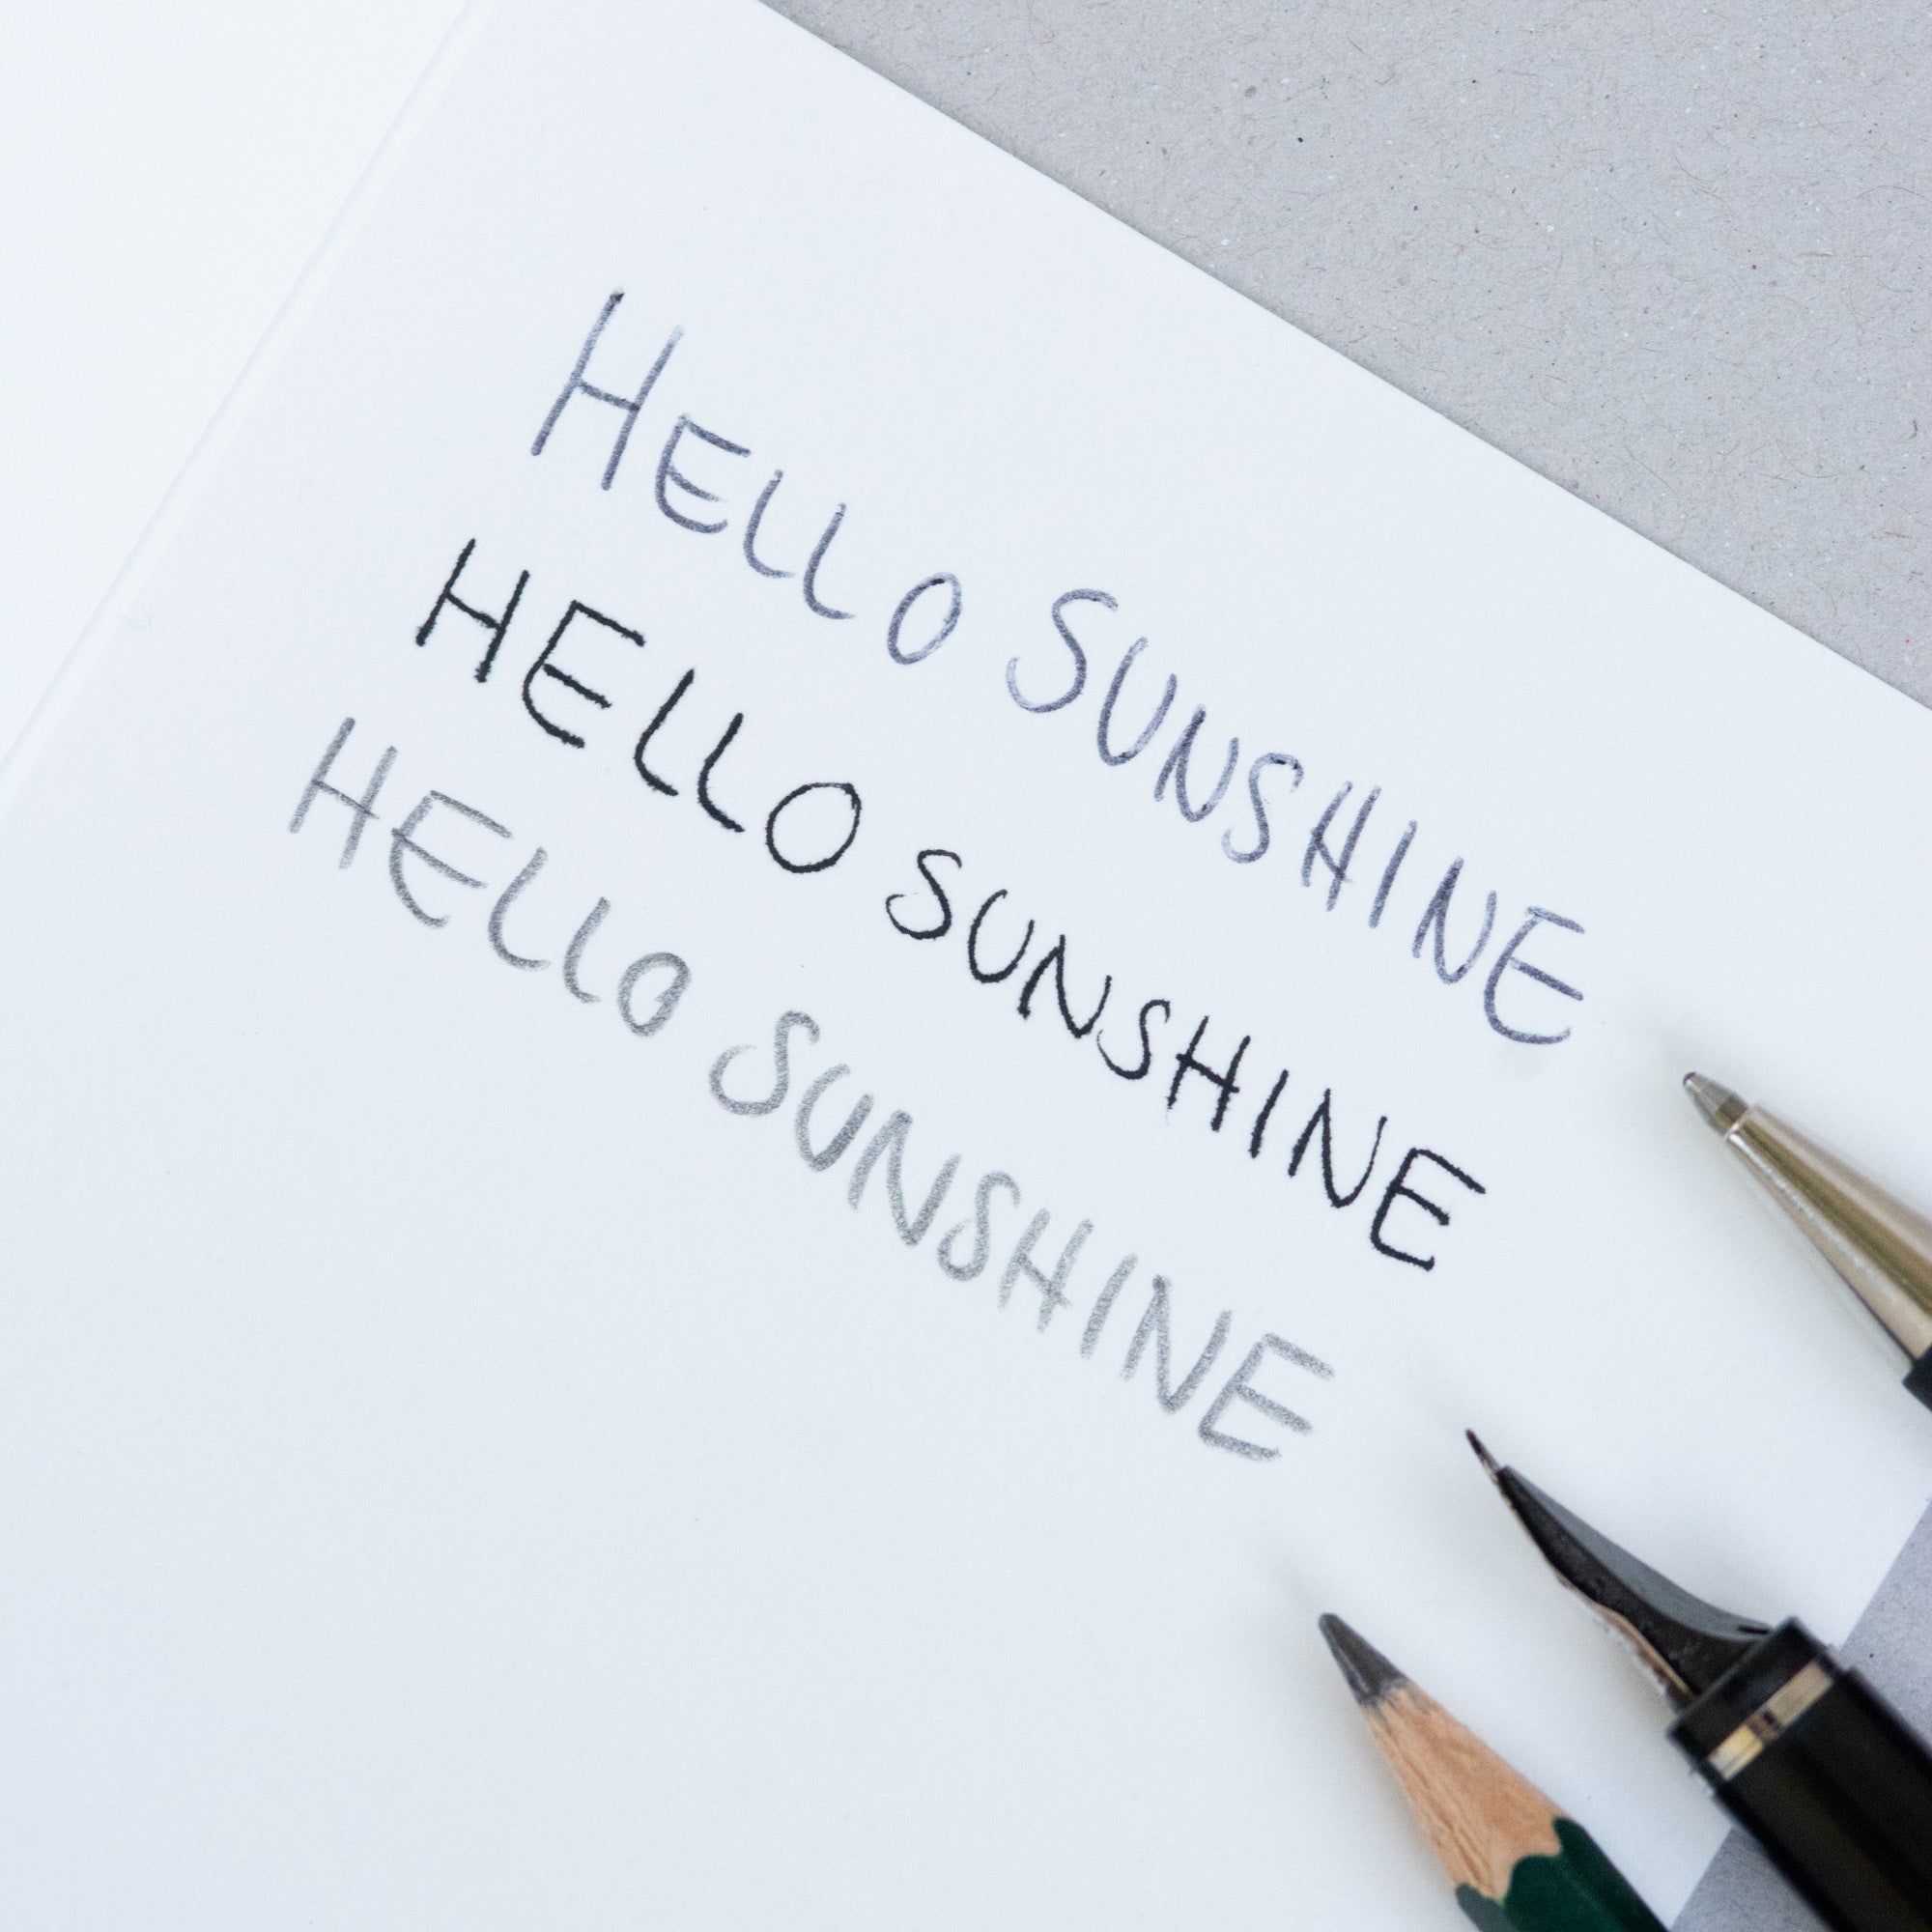 HELLO SUNSHINE
HELLO SUNSHINE
HELLO SUNSHINE